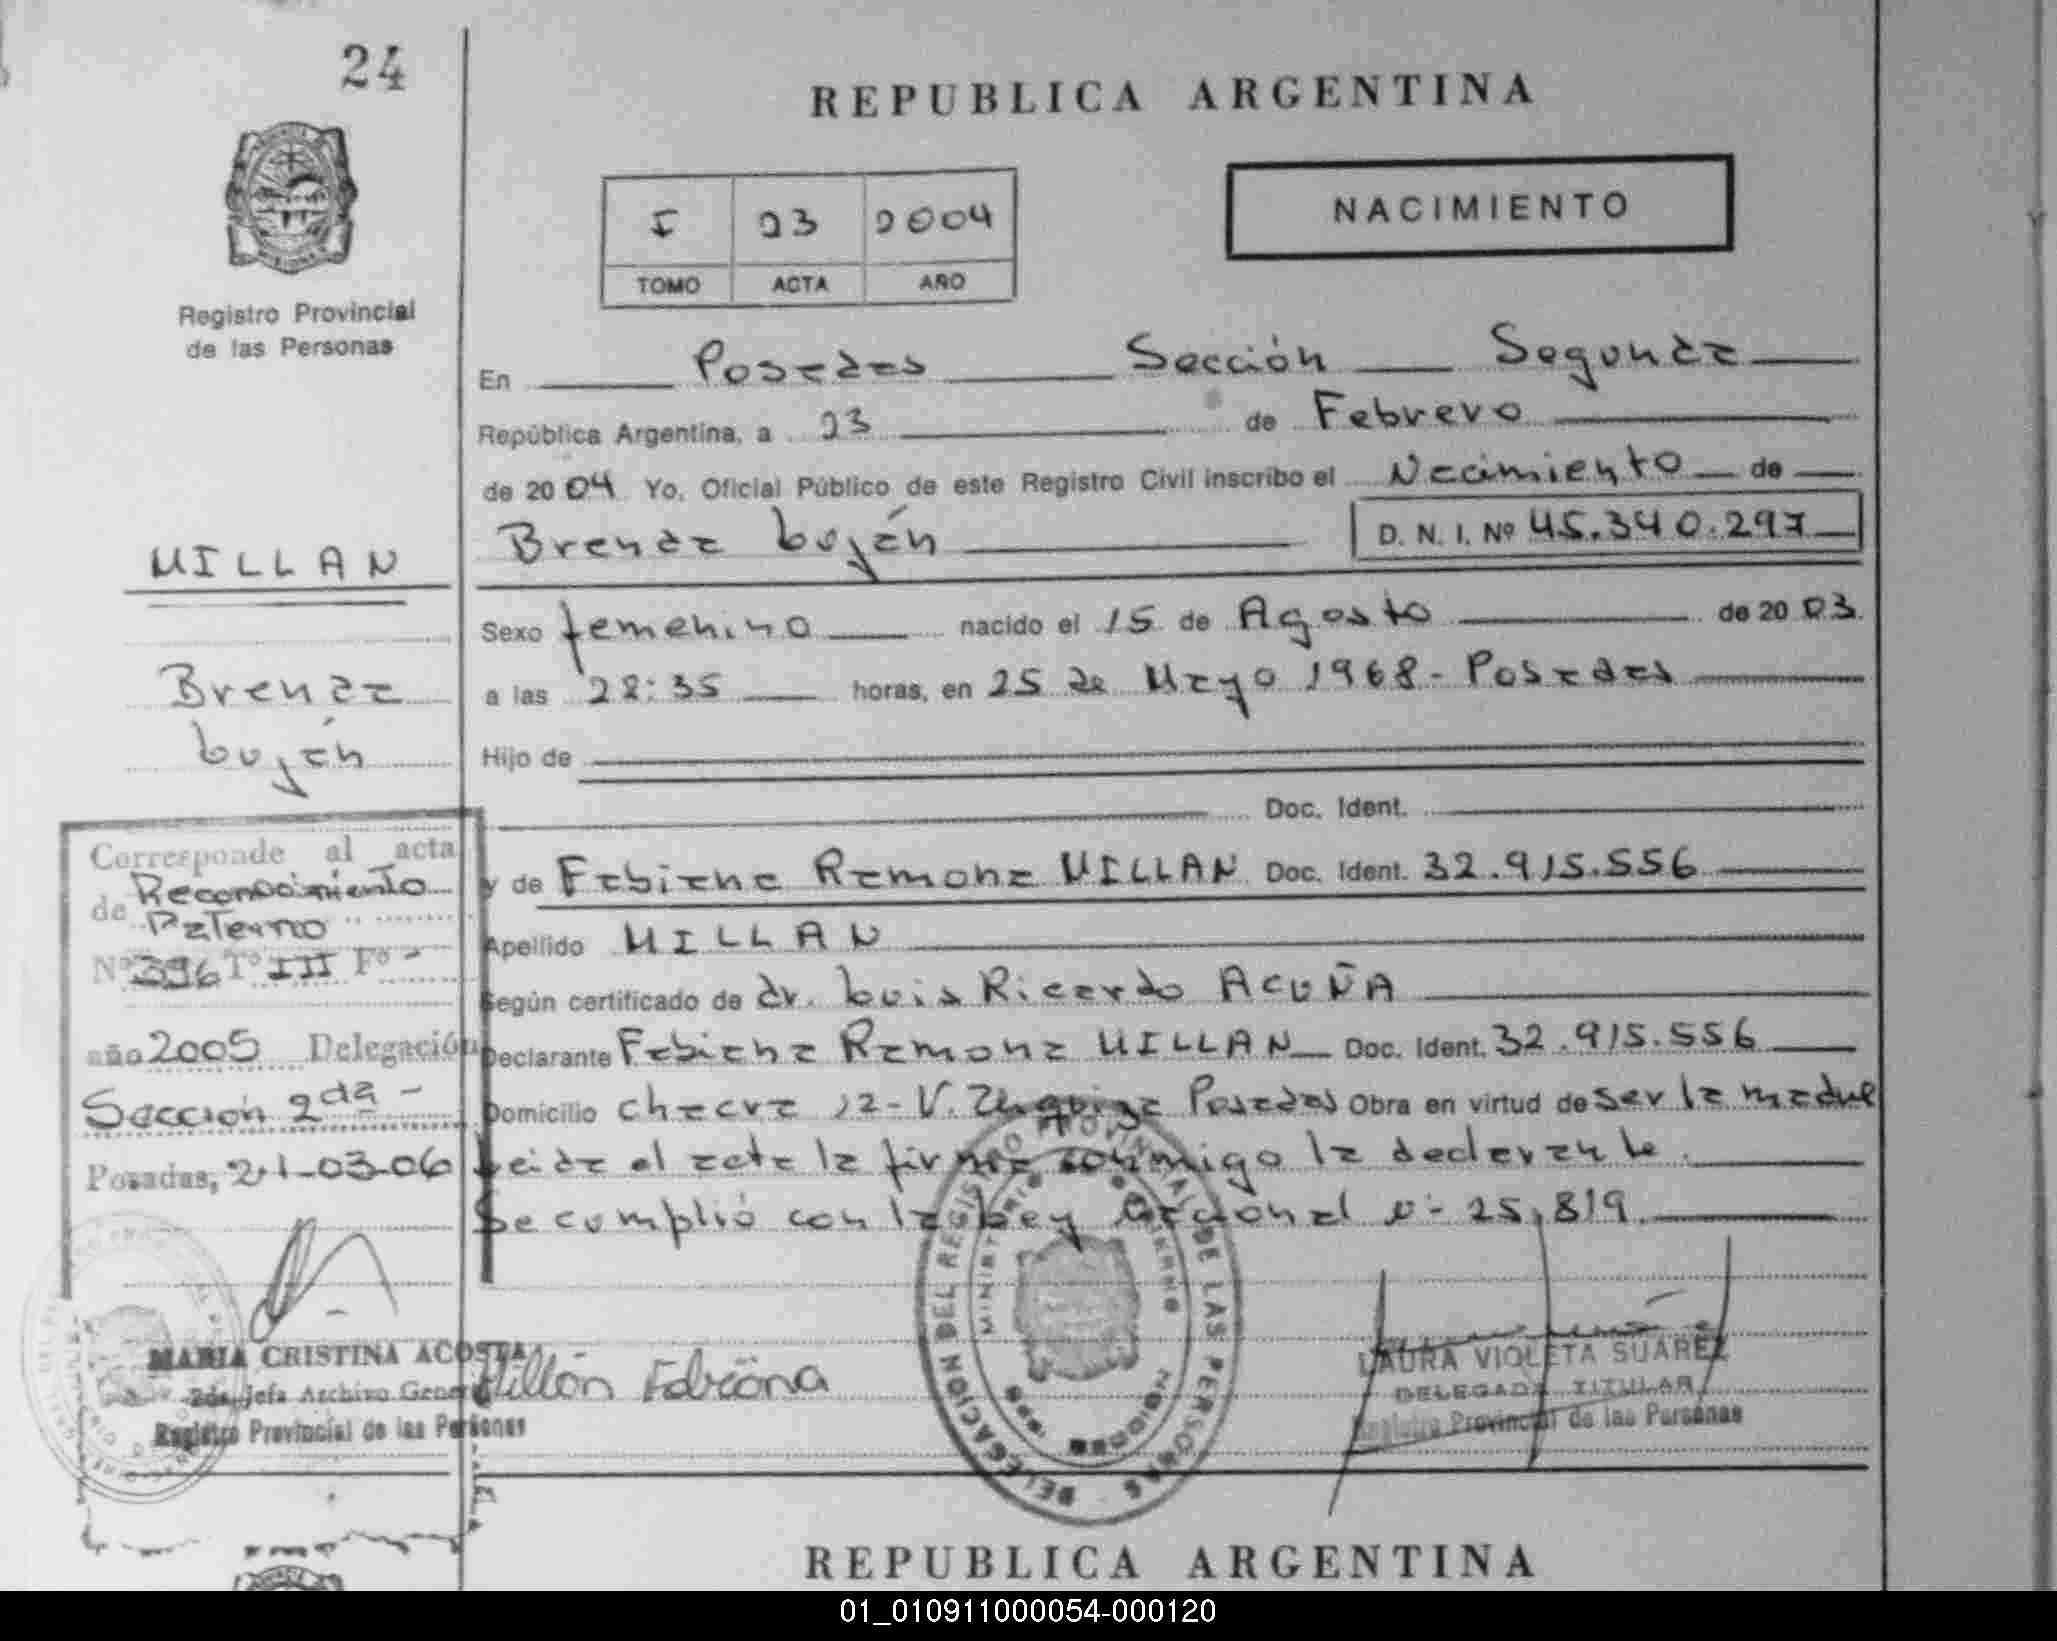 24
REPUBLICA ARGENTINA
I 23 2004
TOMO ACTA AÑO
NACIMIENTO
Registro Provincial
de las Personas
En Posadas Sección Segunda
República Argentina, a 23 de Febrero
de 2004 Yo, Oficial Público de este Registro Civil inscribo el Nacimiento de
Brenda Luján D. N. I. Nº 45.340.297
MILLAN
Sexo femenino nacido el 15 de Agosto de 2003.
Brenda
Luján
a las 22:35 horas, en 25 de Mayo 1968- Posadas
Hijo de
Doc. Ident.
y de Fabiana Ramona MILLAN Doc. Ident. 32.915.556
Apellido MILLAN
Según certificado de dr. Luis Ricardo ACUÑA
Declarante Fabiana Ramona MILLAN Doc. Ident. 32.915.556
Domicilio chacra 12- V. Posadas Obra en virtud de ser la madre
Leida el acta la firma conmigo la declarante.
Se cumplió con la Ley Nacional nº 25.819.
Corresponde al acta
de Reconocimiento
de Paterno
Nº 396 Tº III Fº -
año 2005 Delegación
Sección 2da -
Posadas, 21-03-06
MARIA CRISTINA ACOSTA
2da. Jefa Archivo General
Registro Provincial de las Personas
Millán Fabiana
DELEGACION DEL REGISTRO PROVINCIAL DE LAS PERSONAS
MINISTERIO GOBIERNO
MISIONES
LAURA VIOLETA SUAREZ
DELEGADA TITULAR
Registro Provincial de las Personas
REPUBLICA ARGENTINA
01_010911000054-000120